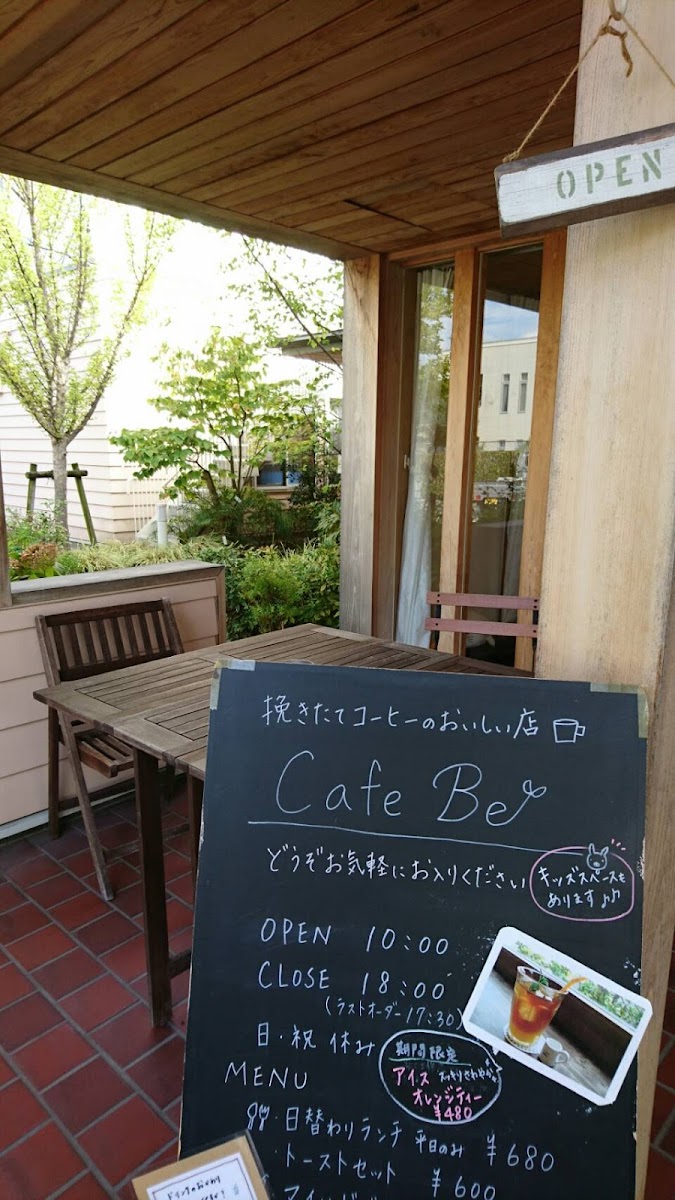 OPEN
挽きたてコーヒーのおいしい店
Cafe Be
どうぞお気軽にお入りください
キッズスペースも
あります♪♪
OPEN 10:00
CLOSE 18:00
(ラストオーダー17:30)
日・祝 休み
期間限定
アイス スッキリさわやか
オレンジティー
¥480
MENU
・日替わりランチ 平日のみ ¥680
・トーストセット ¥600